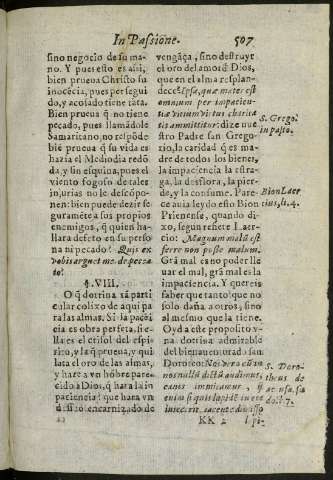 In Passione.
507
sino negocio de su ma-
no. Y pues esto es assi,
bien prueua Christo su
inocẽcia, pues persegui
do, y acosado tiene tãta.
Bien prueua q̃ no tiene
pecado, pues llamãdole
Samaritano no respõde
biẽ prueua q̃ su vida es
hazia el Mediodia redõ
da, y sin esquina, pues el
viento fogoso de tales
injurias no le descõpo-
nen: bien puede dezir se
gurametẽ a sus propios
enemigos, q̃ quien ha-
llara defeto en su perso
na ni pecado? Quis ex
vobis arguet me de pecca
to?
§. VIII.
O q̃ dotrina tã parti
cular colixo de aqui pa
ra las almas. Si la paciẽ
cia es obra perfeta, si e-
lla es el crisol del espi-
ritu, y la q̃ prueua, y qui
lata el oro de las almas,
y haze a vn hõbre pare-
cido a Dios, q̃ hara la in
paciencia? que hara vn
desseo encarnizado de
vengãça, sino destruyr
el oro del amor d̃ Dios,
que en el alma resplan-
dece? Ipsa, quæ mater est
omnium per impacien-
tiã virtum virtus charita
tis ammittitur: dize nue
stro Padre san Grego-
rio, la caridad q̃ es ma-
dre de todos los bienes,
la impaciencia la estra-
ga, la desflora, la pier-
de, y la consume. Pare-
ce auia leydo esto Bion
Prienense, quando di-
xo, segun refiere Laer-
cio: Magnum malũ est
ferre non posse malum.
Grã mal es no poder lle
uar el mal, grã mal es la
impaciencia. Y quereis
saber que tanto? que no
solo daña a otros, sino
al mesmo que la tiene.
Oyd a este proposito v-
na dotrina admirable
del bienauenturado san
Doroteo:
KK 2
S. Grego.
in pasto.
Bion Laer
tius, li. 4.
S. Doro-
theus de